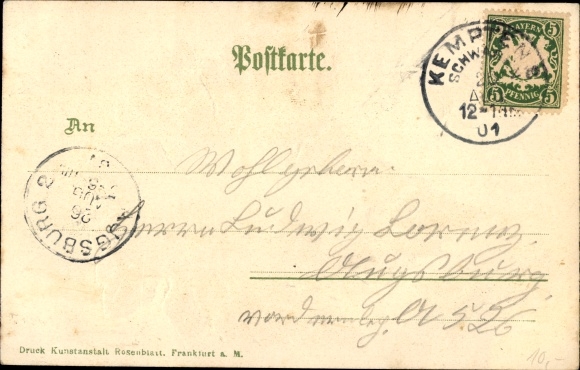 Postkarte.
BAYERN
5 5
5 PFENNIG 5
KEMPTEN
SCHWA
12-1
01
An
AUGSBURG 2
26
AUG
Wohlgeboren
Herrn Ludwig Lorenz,
Augsburg,
A 526
Druck Kunstanstalt Rosenblatt, Frankfurt a. M.
10,-